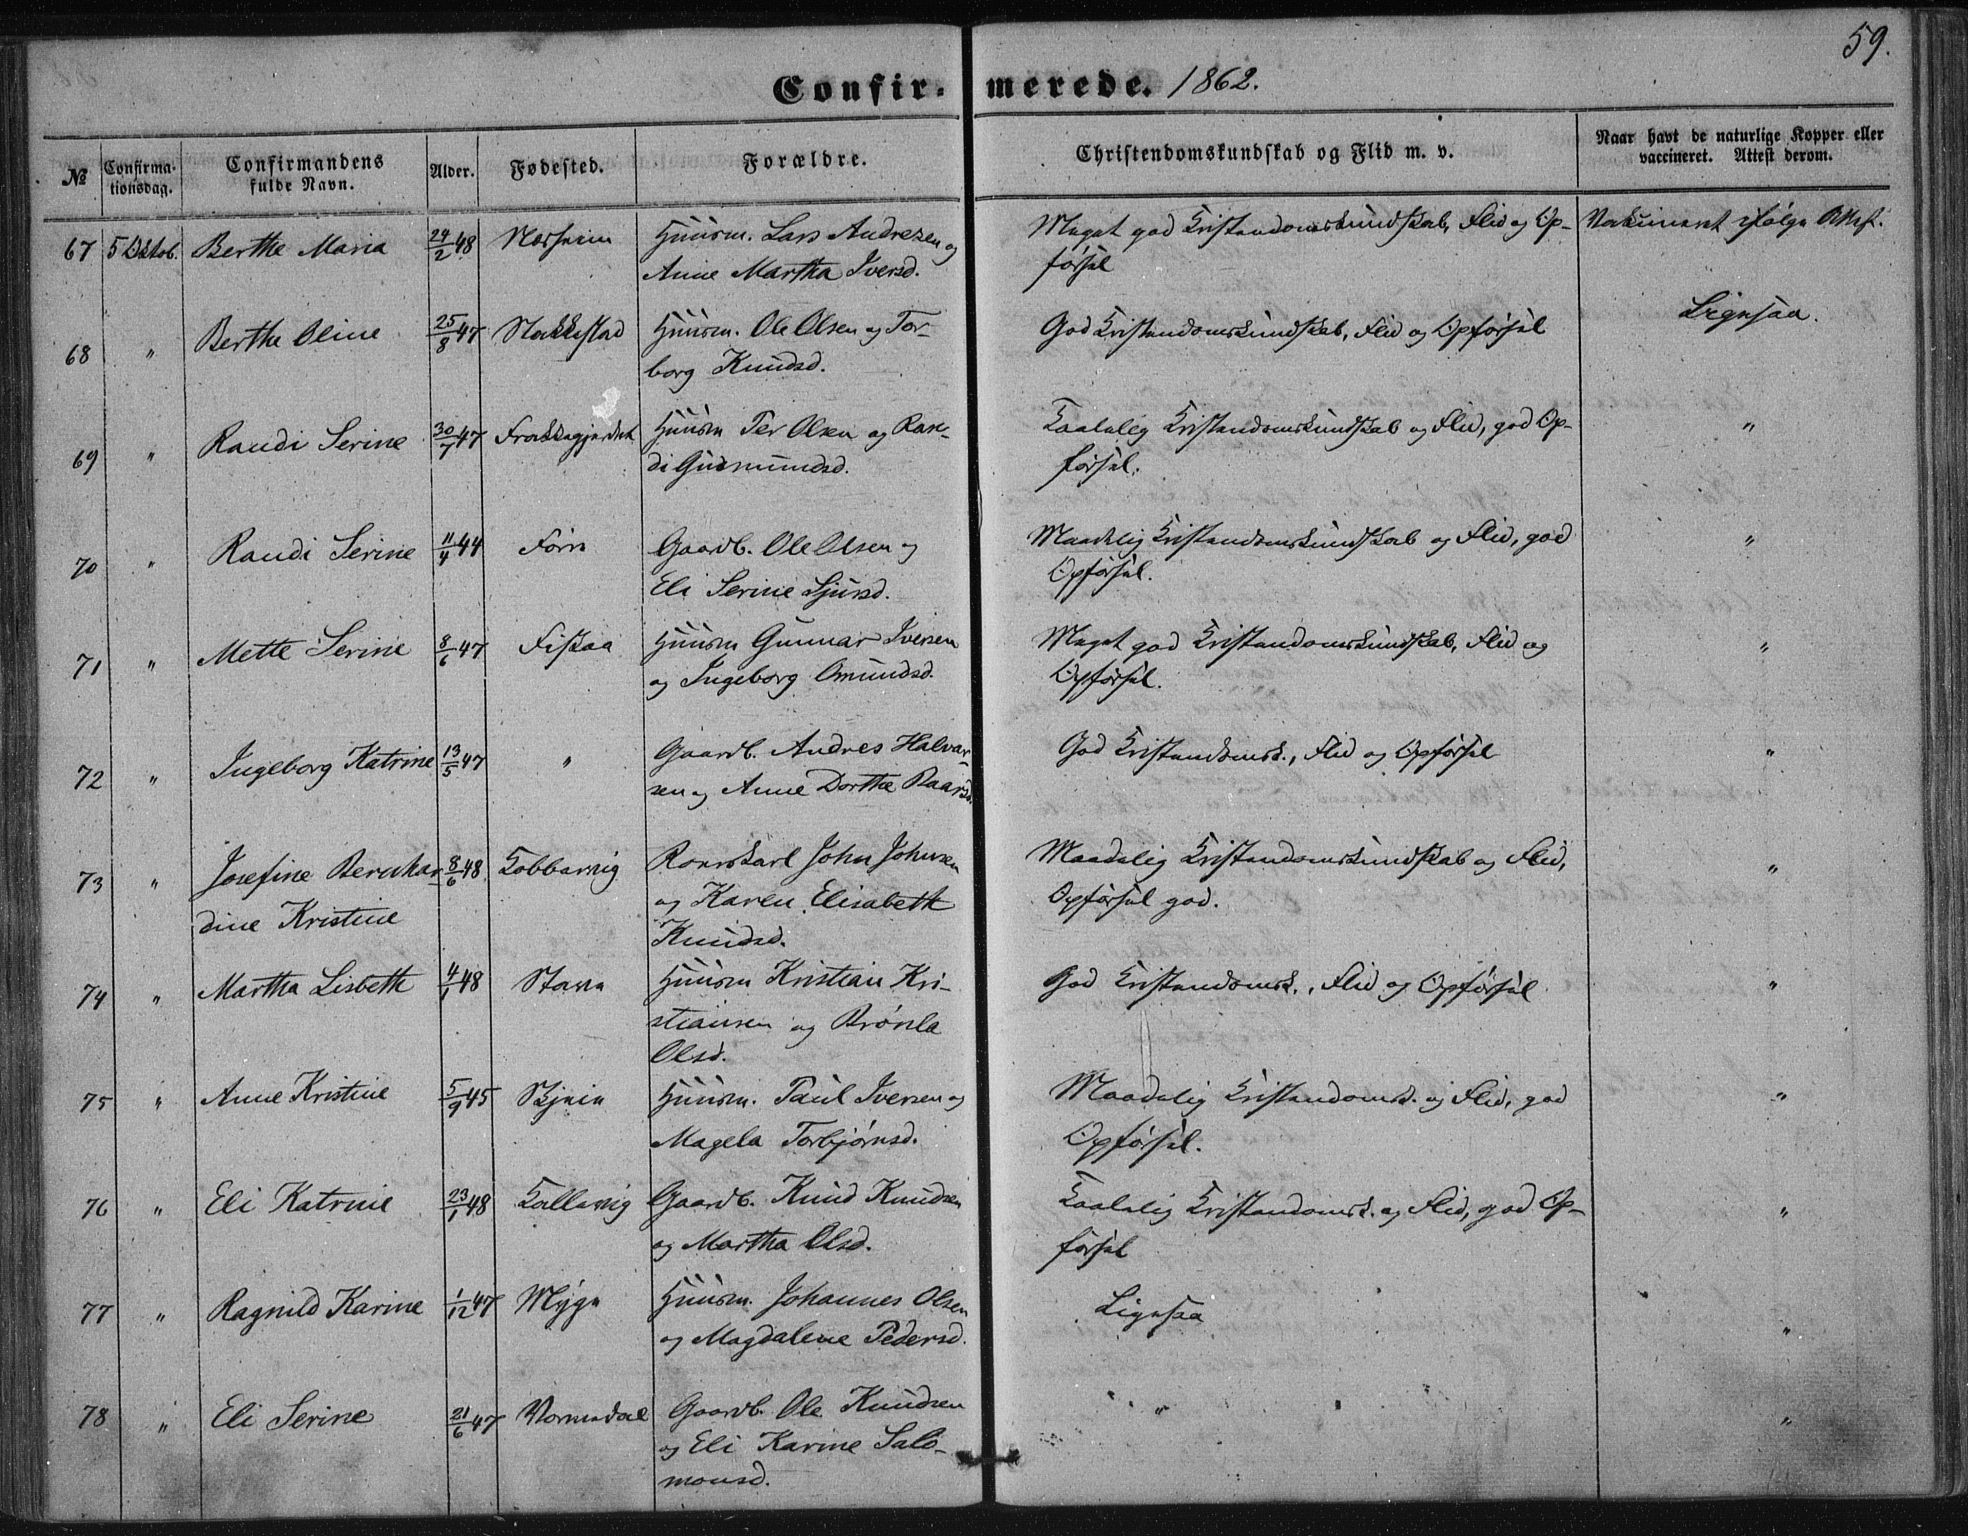 59.
Confir- merede. 1862.
№ Confirma-tionsdag. Confirmandens fulde Navn. Alder. Fødested. Forældre. Christendomskundskab og Flid m. v. Naar havt de naturlige Kopper eller vaccineret. Attest derom.
67 5 Oktob. Berthe Maria 24/2 48 Næsheim Huusm. Lars Andresen og Meget god Kristendomskundskab, Flid og Op- Vakcineret ifølge Attest.
Anne Martha Iversd. førsel
68 " Berthe Oline 25/8 47 Stakkestad Huusm. Ole Olsen og Tor- God Kristendomskundskab, Flid og Opførsel Ligesaa.
borg Knudsd.
69 " Randi Serine 30/7 47 Frakkagjerdet Huusm Per Olsen og Ran- Taalelig Kristendomskundskab og Flid, god Op- "
di Gudmundsd. førsel.
70 " Randi Serine 11/4 44 Førre Gaardb. Ole Olsen og Maadelig Kristendomskundskab og Flid, god "
Eli Serine Sjursd. Opførsel.
71 " Mette Serine 8/6 47 Fiskaa Huusm Gunnar Iversen Meget god Kristendomskundskab, Flid og "
og Ingeborg Omundsd. Opførsel.
72 " Ingeborg Katrine 13/5 47 " Gaardb. Andres Halvar- God Kristendomsk., Flid og Opførsel "
sen og Anne Dorthe Baarsd.
73 " Josefine Bernhar- 8/6 48 Kobbarvig Rorskarl John Johnsen Maadelig Kristendomskundskab og Flid, "
dine Kristine og Karen Elisabeth Opførsel god.
Knudsd.
74 " Martha Lisbeth 4/1 48 Stava Huusm Kristian Kri- God Kristendomsk., Flid og Opførsel "
stiansen og Brønla
Olsd.
75 " Anne Kristine 5/9 45 Skjein Huusm. Paul Iversen og Maadelig Kristendomsk. og Flid, god "
Magela Torbjørnsd. Opførsel.
76 " Eli Katrine 23/1 48 Kallavig Gaardb. Knud Knudsen Taalelig Kristendomsk. og Flid, god Op- "
og Martha Olsd. førsel
77 " Ragnild Karine 1/12 47 Myge Huusm. Johannes Olsen Ligesaa "
og Magdalene Pedersd.
78 " Eli Serine 21/6 47 Vormedal Gaardb. Ole Knudsen " "
og Eli Karine Salo-
monsd.